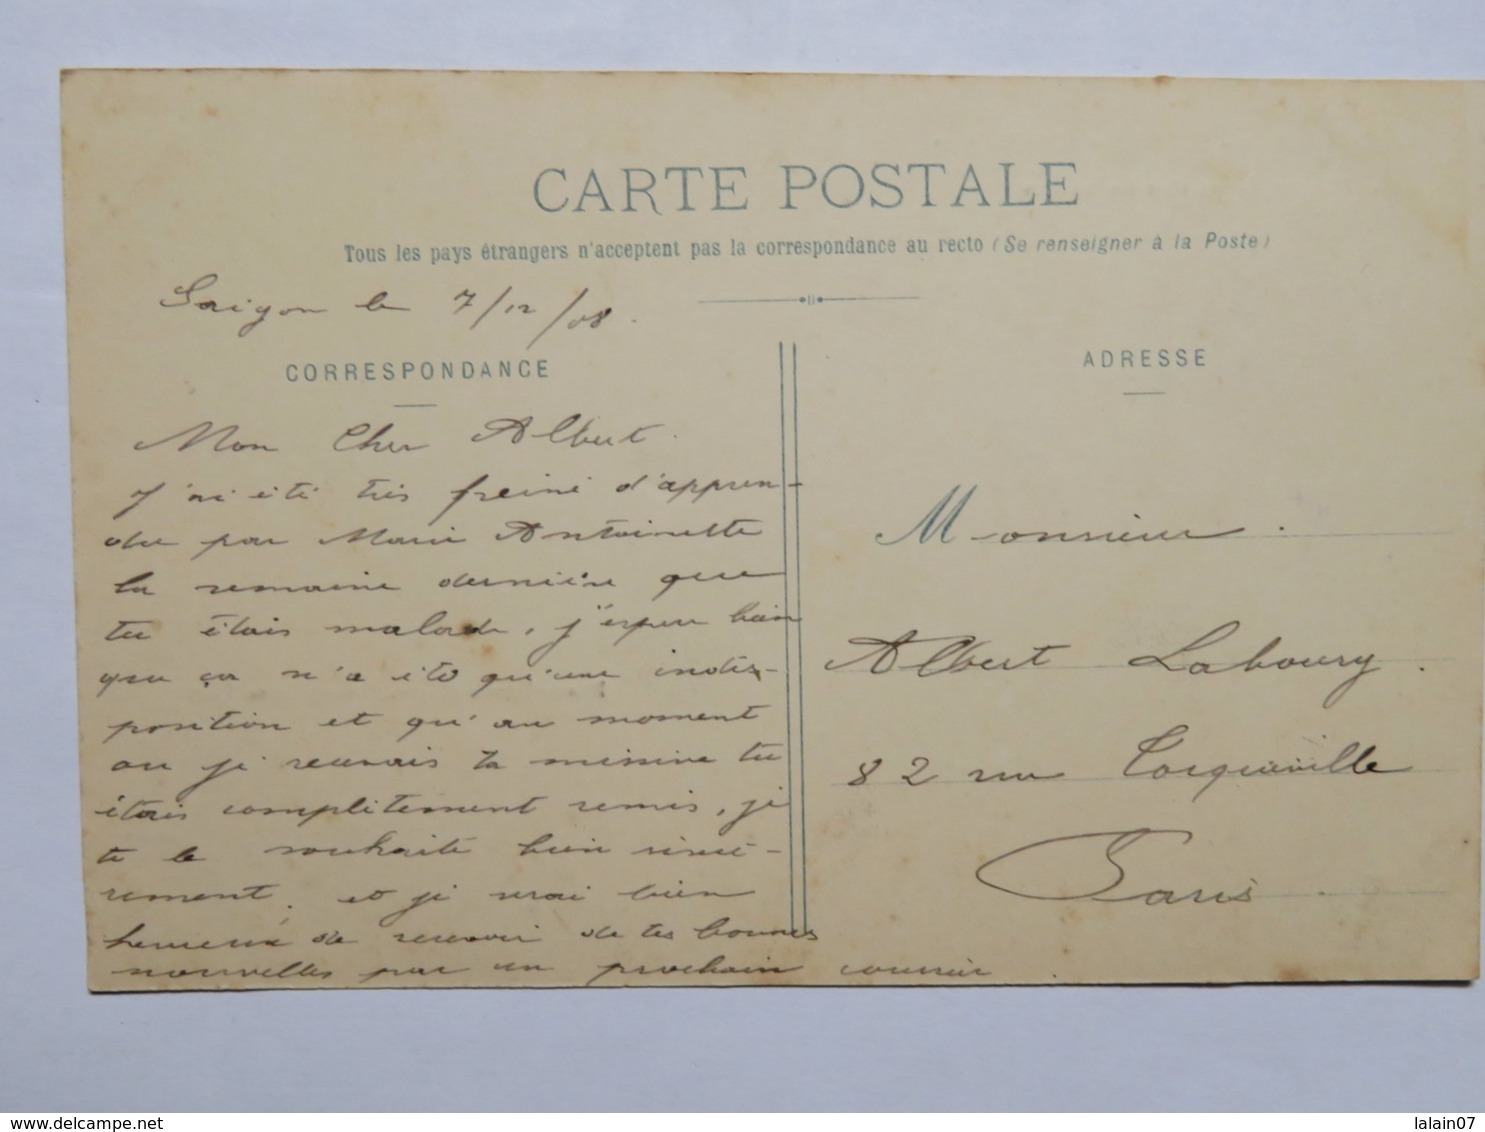 CARTE POSTALE
Tous les pays étrangers n'acceptent pas la correspondance au recto (Se renseigner à la Poste)
Saigon le 7/12/08.
CORRESPONDANCE
Mon Cher Albert.
J'ai été très peiné d'appren-
dre par Marie Antoinette
la semaine dernière que
tu étais malade, j'espère bien
que ça n'a été qu'une indis-
position et qu'au moment
ou je recevais ta missive tu
étais complètement remis, je
te le souhaite bien sincè-
rement, et je serai bien
heureux de recevoir de tes bonnes
nouvelles par un prochain courrier.
ADRESSE
Monsieur.
Albert Laboury.
82 rue Tocqueville
Paris.
www.delcampe.net
lalain07